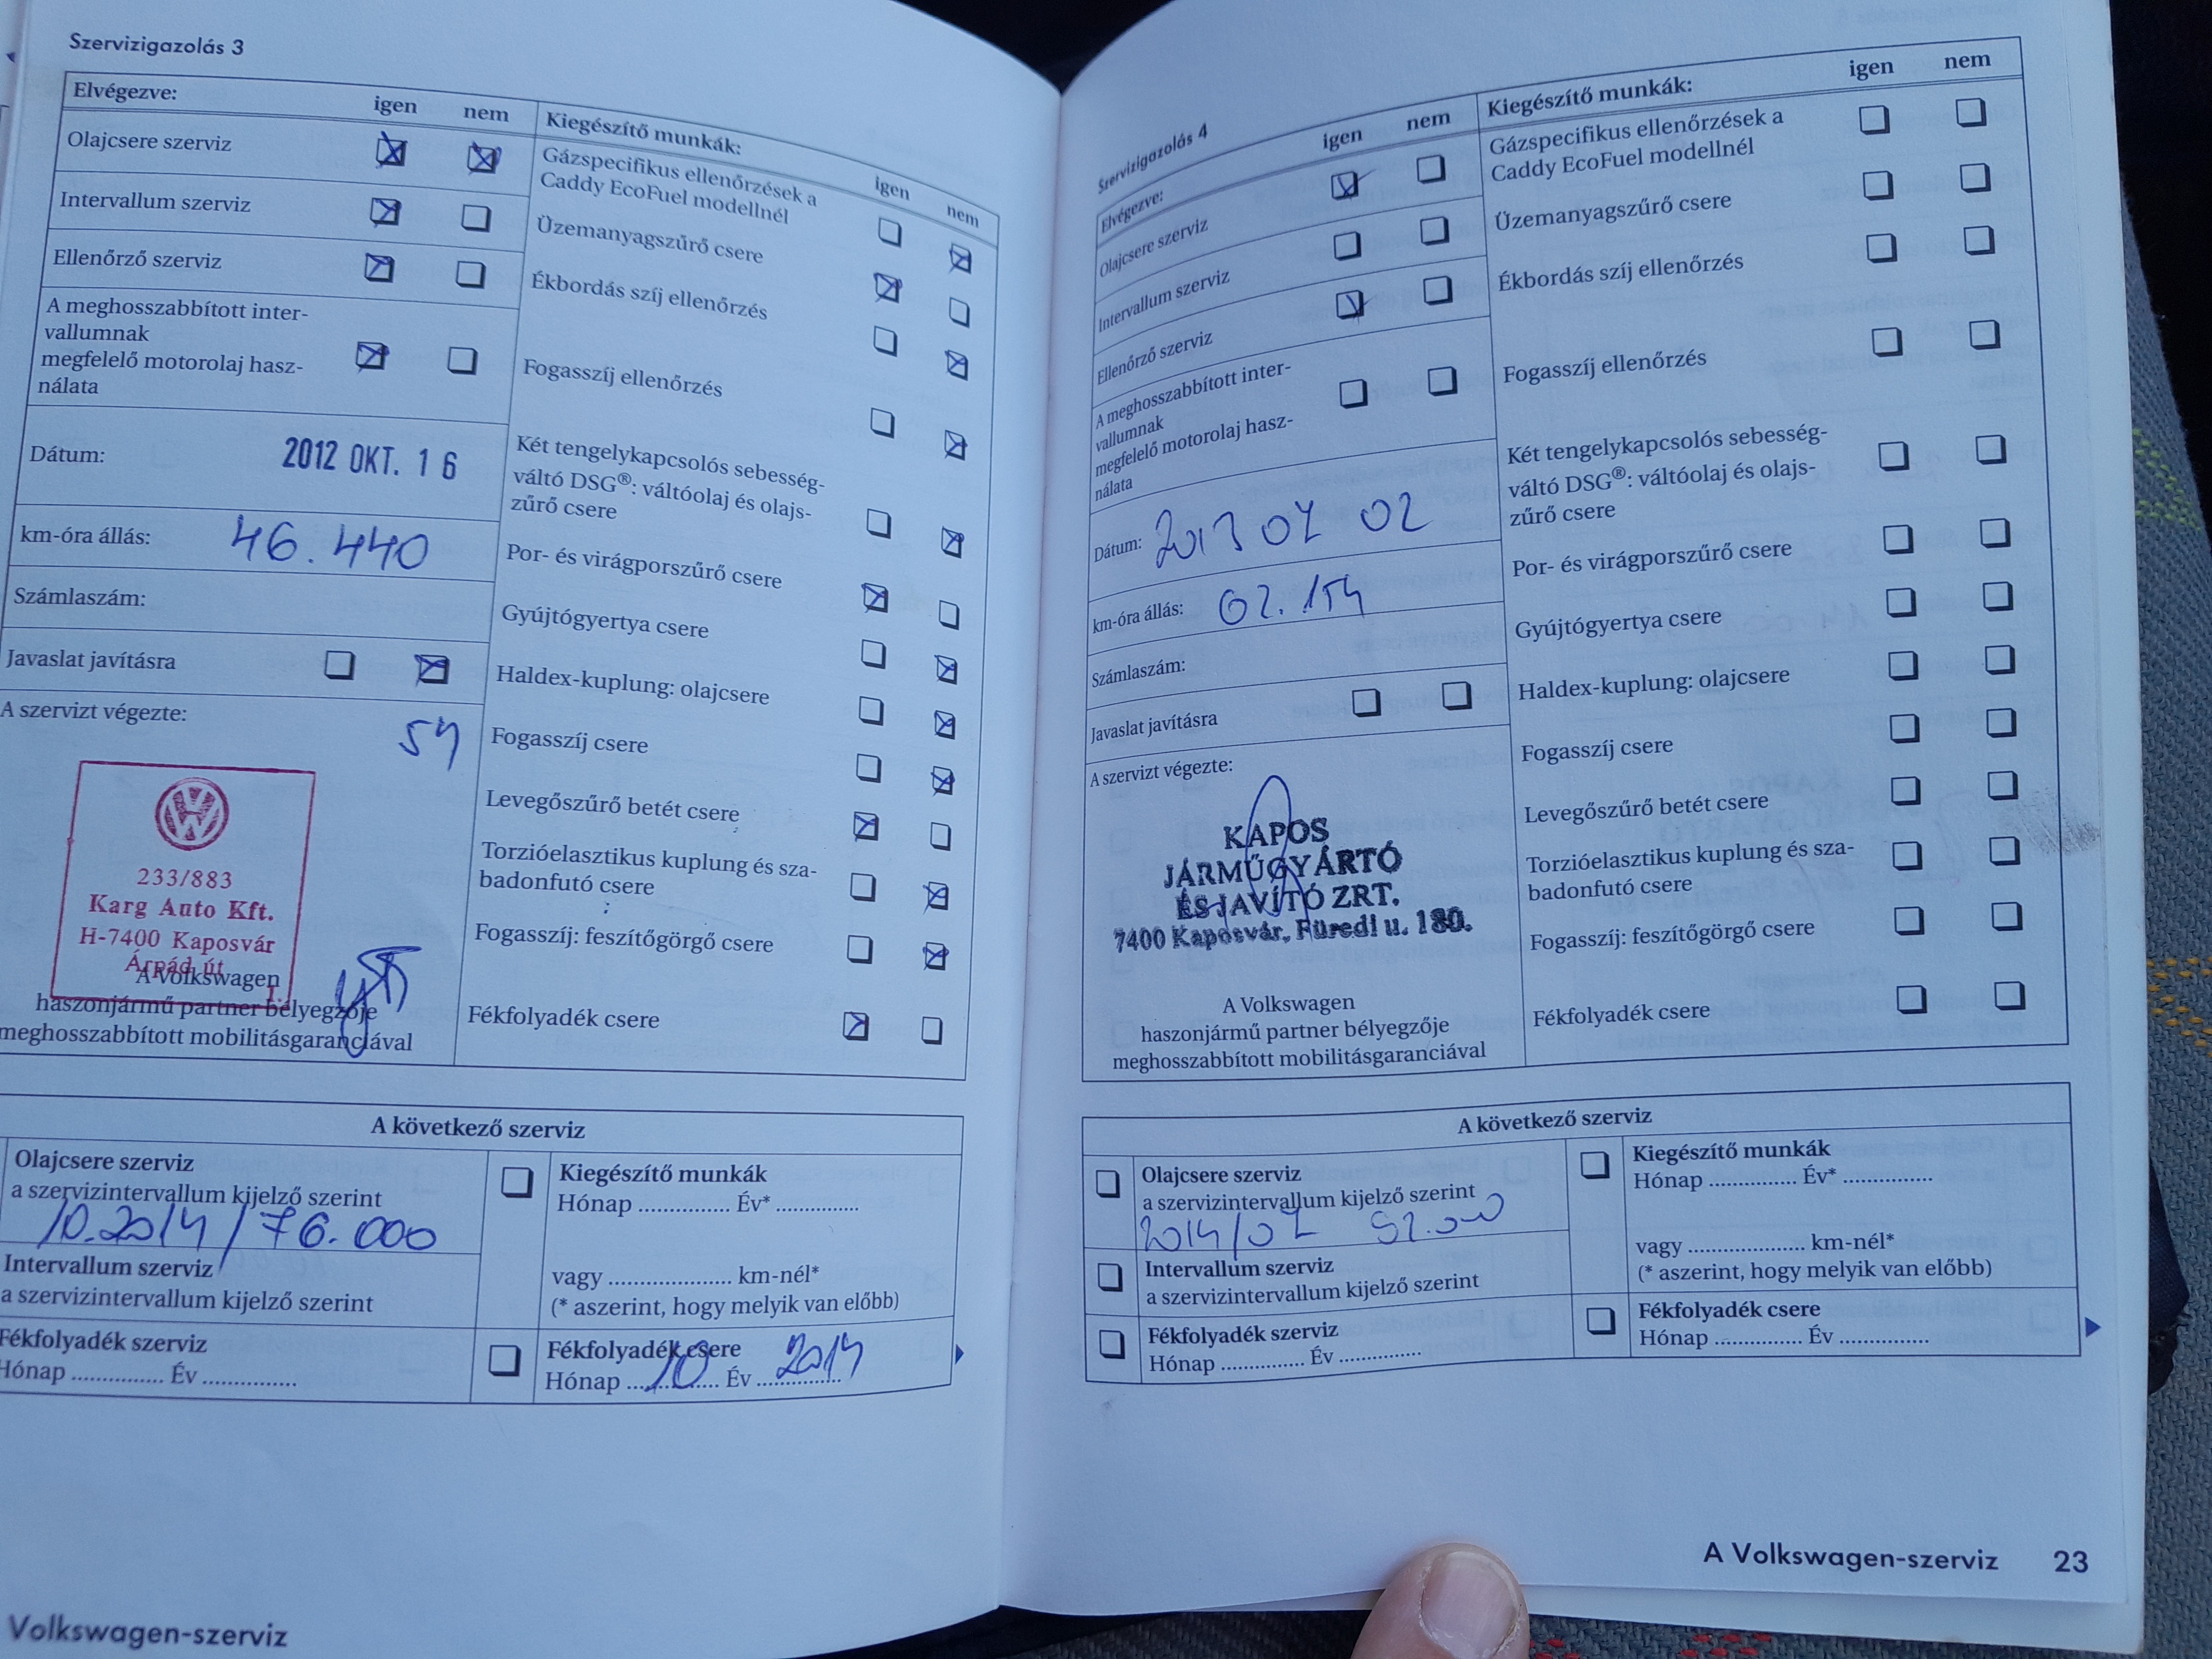 Szervizigazolás 3
Elvégezve: igen nem
Olajcsere szerviz
Intervallum szerviz
Ellenőrző szerviz
A meghosszabbított inter-
vallumnak
megfelelő motorolaj hasz-
nálata
Dátum: 2012 OKT. 16
km-óra állás: 46.440
Számlaszám:
Javaslat javításra
A szervizt végezte:
233/883
Karg Auto Kft.
H-7400 Kaposvár
Árpád út
A Volkswagen
haszonjármű partner bélyegzője
meghosszabbított mobilitásgaranciával
Kiegészítő munkák:
igen nem
Gázspecifikus ellenőrzések a
Caddy EcoFuel modellnél
Üzemanyagszűrő csere
Ékbordás szíj ellenőrzés
Fogasszíj ellenőrzés
Két tengelykapcsolós sebesség-
váltó DSG®: váltóolaj és olajs-
zűrő csere
Por- és virágporszűrő csere
Gyújtógyertya csere
Haldex-kuplung: olajcsere
Fogasszíj csere
Levegőszűrő betét csere
Torzióelasztikus kuplung és sza-
badonfutó csere
Fogasszíj: feszítőgörgő csere
Fékfolyadék csere
A következő szerviz
Olajcsere szerviz
a szervizintervallum kijelző szerint
10.2014 / 76.000
Intervallum szerviz
a szervizintervallum kijelző szerint
Fékfolyadék szerviz
Hónap ............... Év ...............
Kiegészítő munkák
Hónap ............... Év* ...............
vagy .................... km-nél*
(* aszerint, hogy melyik van előbb)
Fékfolyadék csere
Hónap 10 Év 2014
Volkswagen-szerviz
Szervizigazolás 4
Elvégezve: igen nem
Olajcsere szerviz
Intervallum szerviz
Ellenőrző szerviz
A meghosszabbított inter-
vallumnak
megfelelő motorolaj hasz-
nálata
Dátum: 2013 07 02
km-óra állás:
Számlaszám:
Javaslat javításra
A szervizt végezte:
KAPOS
JÁRMŰGYÁRTÓ
ÉS JAVÍTÓ ZRT.
7400 Kaposvár, Füredi u. 180.
A Volkswagen
haszonjármű partner bélyegzője
meghosszabbított mobilitásgaranciával
Kiegészítő munkák: igen nem
Gázspecifikus ellenőrzések a
Caddy EcoFuel modellnél
Üzemanyagszűrő csere
Ékbordás szíj ellenőrzés
Fogasszíj ellenőrzés
Két tengelykapcsolós sebesség-
váltó DSG®: váltóolaj és olajs-
zűrő csere
Por- és virágporszűrő csere
Gyújtógyertya csere
Haldex-kuplung: olajcsere
Fogasszíj csere
Levegőszűrő betét csere
Torzióelasztikus kuplung és sza-
badonfutó csere
Fogasszíj: feszítőgörgő csere
Fékfolyadék csere
A következő szerviz
Olajcsere szerviz
a szervizintervallum kijelző szerint
2014/07
Intervallum szerviz
a szervizintervallum kijelző szerint
Fékfolyadék szerviz
Hónap ............... Év ...............
Kiegészítő munkák
Hónap ............... Év* ...............
vagy .................... km-nél*
(* aszerint, hogy melyik van előbb)
Fékfolyadék csere
Hónap ............... Év ...............
A Volkswagen-szerviz 23